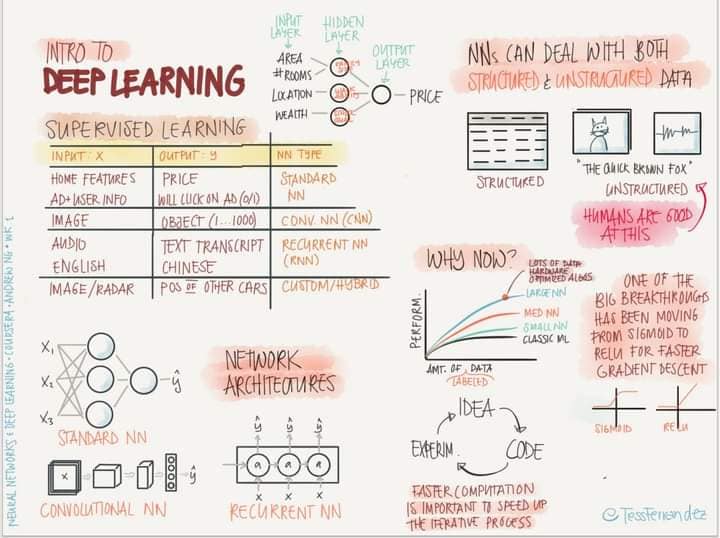 INTRO TO
DEEP LEARNING
INPUT
LAYER
HIDDEN
LAYER
OUTPUT
LAYER
AREA
# ROOMS
LOCATION
WEALTH
PRICE
SUPERVISED LEARNING
INPUT: X OUTPUT: Y NN TYPE
HOME FEATURES PRICE STANDARD
AD+USER INFO WILL CLICK ON AD (0/1) NN
IMAGE OBJECT (1...1000) CONV. NN (CNN)
AUDIO TEXT TRANSCRIPT RECURRENT NN
ENGLISH CHINESE (RNN)
IMAGE/RADAR POS OF OTHER CARS CUSTOM/HYBRID
X1
X2
X3
ŷ
STANDARD NN
NETWORK
ARCHITECTURES
X
ŷ
CONVOLUTIONAL NN
ŷ ŷ ŷ
a a a
X X X
RECURRENT NN
NNs CAN DEAL WITH BOTH
STRUCTURED & UNSTRUCTURED DATA
STRUCTURED
"THE QUICK BROWN FOX"
UNSTRUCTURED
HUMANS ARE GOOD
AT THIS
WHY NOW?
LOTS OF DATA
HARDWARE
OPTIMIZED ALGOS
LARGE NN
MED NN
SMALL NN
CLASSIC ML
PERFORM.
AMT. OF DATA
LABELED
ONE OF THE
BIG BREAKTHROUGHS
HAS BEEN MOVING
FROM SIGMOID TO
RELU FOR FASTER
GRADIENT DESCENT
SIGMOID
RELU
IDEA
CODE
EXPERIM.
FASTER COMPUTATION
IS IMPORTANT TO SPEED UP
THE ITERATIVE PROCESS
@TessFerrandez
NEURAL NETWORKS & DEEP LEARNING · COURSERA · ANDREW NG · WK 1